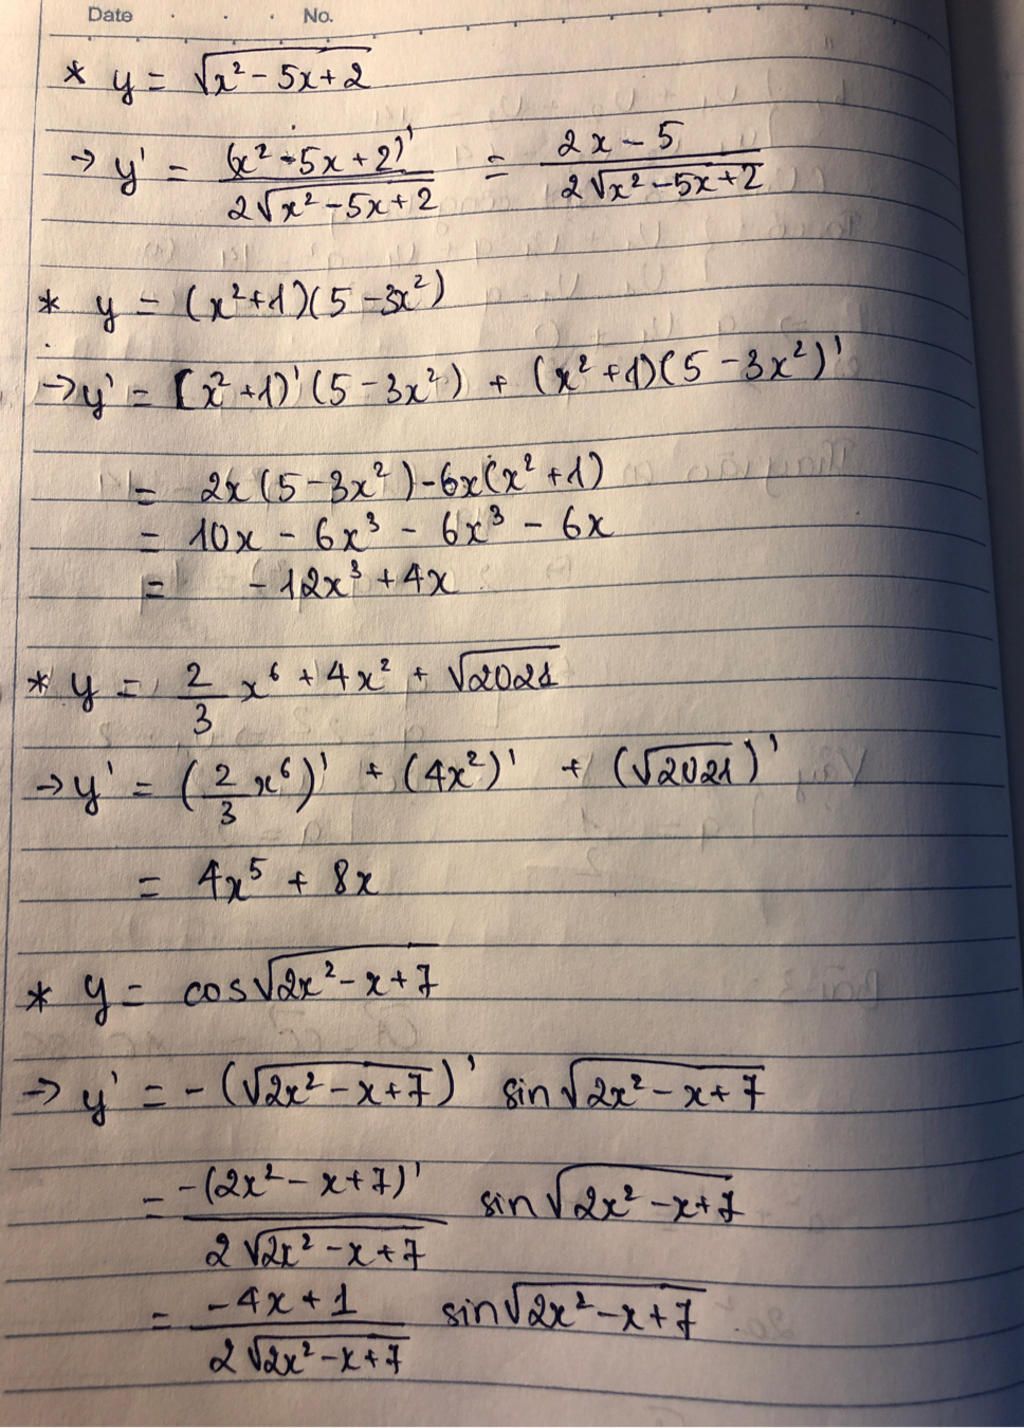 Date No.
* y = √(x² - 5x + 2)
→ y' = (x² - 5x + 2)' / 2√(x² - 5x + 2) = 2x - 5 / 2√(x² - 5x + 2)
* y = (x² + 1)(5 - 3x²)
→ y' = (x² + 1)'(5 - 3x²) + (x² + 1)(5 - 3x²)'
= 2x(5 - 3x²) - 6x(x² + 1)
= 10x - 6x³ - 6x³ - 6x
= -12x³ + 4x
* y = 2/3 x⁶ + 4x² + √2021
→ y' = (2/3 x⁶)' + (4x²)' + (√2021)'
= 4x⁵ + 8x
* y = cos√(2x² - x + 7)
→ y' = -(√(2x² - x + 7))' sin√(2x² - x + 7)
= -(2x² - x + 7)' / 2√(2x² - x + 7) sin√(2x² - x + 7)
= -4x + 1 / 2√(2x² - x + 7) sin√(2x² - x + 7)